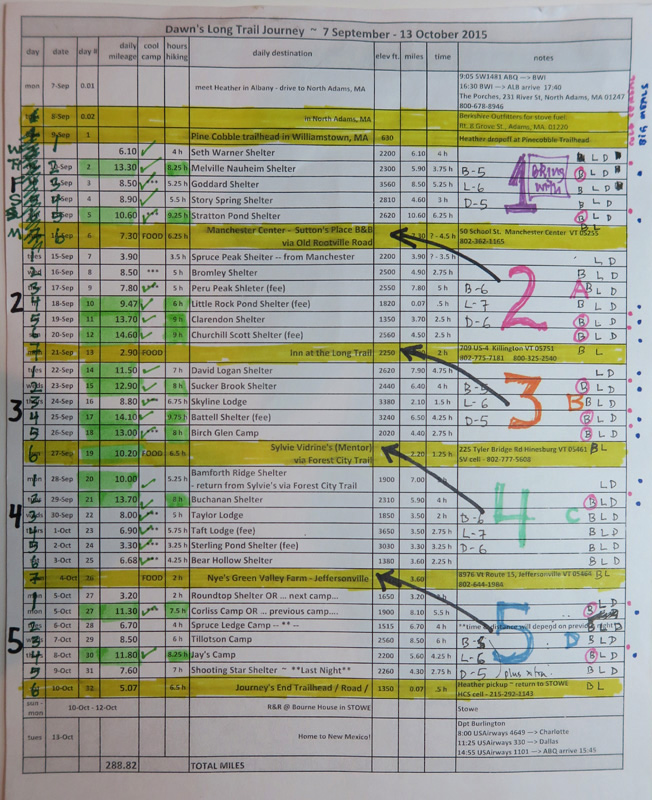 Dawn's Long Trail Journey ~ 7 September - 13 October 2015
day date day # daily mileage cool camp hours hiking daily destination elev ft. miles time notes
mon 7-Sep 0.01 meet Heather in Albany - drive to North Adams, MA
9:05 SW1481 ABQ —> BWI
16:30 BWI —> ALB arrive 17:40
The Porches, 231 River St, North Adams, MA 01247
800-678-8946
8-Sep 0.02 in North Adams, MA
Berkshire Outfitters for stove fuel:
Rt. 8 Grove St., Adams, MA. 01230
9-Sep 1 Pine Cobble trailhead in Williamstown, MA 630 Heather dropoff at Pinecobble Trailhead
6.10 4 h Seth Warner Shelter 2200 6.10 4 h L D
2 13.30 8.25 h Melville Nauheim Shelter 2300 5.90 3.75 h B-5 B L D
3 8.50 5.25 h Goddard Shelter 3560 8.50 5.25 h L-6
4 8.90 5.5 h Story Spring Shelter 2810 4.60 3 h D-5
5 10.60 9.25 h Stratton Pond Shelter 2620 10.60 6.25 h B L D
1 BRING WITH
6 7.30 FOOD 6.25 h Manchester Center - Sutton's Place B&B
via Old Rootville Road
? - 4.5 h
50 School St. Manchester Center VT 05255
802-362-1165
15-Sep 7 3.90 3.5 h Spruce Peak Shelter -- from Manchester 2200 3.90 ? - 3.5h L D
16-Sep 8 8.50 5 h Bromley Shelter 2500 4.90 2.75 h B L D
17-Sep 9 7.80 5 h Peru Peak Shleter (fee) 2550 7.80 5 h B-6 A B L D
18-Sep 10 9.47 6 h Little Rock Pond Shelter (fee) 1820 0.07 .5 h L-7 B L D
19-Sep 11 13.70 9 h Clarendon Shelter 1350 3.70 2.5 h D-6 B L D
20-Sep 12 14.60 9 h Churchill Scott Shelter (fee) 2560 4.50 2.5 h B L D
2
21-Sep 13 2.90 FOOD Inn at the Long Trail 2250 2 h
709 US-4 Killington VT 05751
802-775-7181 800-325-2540
B L
22-Sep 14 11.50 7 h David Logan Shelter 2620 7.90 4.75 h L D
23-Sep 15 12.90 8 h Sucker Brook Shelter 2440 6.40 4 h B-5 B L D
24-Sep 16 8.80 6.75 h Skyline Lodge 3380 2.10 1.5 h L-6 B B L D
25-Sep 17 14.10 9.75 h Battell Shelter (fee) 3240 6.50 4.25 h D-5 B L D
26-Sep 18 13.00 8 h Birch Glen Camp 2020 4.40 2.75 h B L D
3
27-Sep 19 10.20 FOOD 6.5 h Sylvie Vidrine's (Mentor)
via Forest City Trail
2.20 1.25 h
225 Tyler Bridge Rd Hinesburg VT 05461
SV cell - 802-777-5608
B L
28-Sep 20 10.00 5.25 h Bamforth Ridge Shelter
- return from Sylvie's via Forest City Trail
1900 7.00 L D
29-Sep 21 13.70 8 h Buchanan Shelter 2310 5.90 4 h B L D
30-Sep 22 8.00 5 h Taylor Lodge 1850 3.50 2 h B-6 C B L D
1-Oct 23 6.90 5.75 h Taft Lodge (fee) 3650 3.50 2.75 h L-7 B L D
2-Oct 24 3.30 3.25 h Sterling Pond Shelter (fee) 3030 3.30 3.25 h D-6 B L D
3-Oct 25 6.68 4.25 h Bear Hollow Shelter 1380 3.60 2.25 h B L D
4
4-Oct 26 FOOD 2 h Nye's Green Valley Farm - Jeffersonville 3.60
8976 Vt Route 15, Jeffersonville VT 05464
802-644-1984
B L
5-Oct 27 3.20 2 h Roundtop Shelter OR ... next camp.... 1650 3.20 L D
5-Oct 27 11.30 7.5 h Corliss Camp OR .. previous camp.... 1900 8.10 5.5 h B
6-Oct 28 6.70 4 h Spruce Ledge Camp -- ** -- 1515 6.70 4 h **time & distance will depend on previous night
7-Oct 29 8.50 6 h Tillotson Camp 2560 8.50 6 h D B L D
8-Oct 30 11.80 8.25 h Jay's Camp 2200 5.60 4.25 h L-6 B L D
9-Oct 31 7.60 7 h Shooting Star Shelter ~ **Last Night** 2260 4.30 2.75 h D-5 plus xtra B L D
5
10-Oct 32 5.07 6.5 h Journey's End Trailhead / Road / 1350 0.07 .5 h
Heather pickup ~ return to STOWE
HCS cell - 215-292-1143
B L
sun - mon 10-Oct - 12-Oct R&R @ Bourne House in STOWE Stowe
tues 13-Oct Home to New Mexico!
Dpt Burlington
8:00 USAirways 4649 —> Charlotte
11:25 USAirways 330 —> Dallas
14:55 USAirways 1101 —> ABQ arrive 15:45
288.82 TOTAL MILES